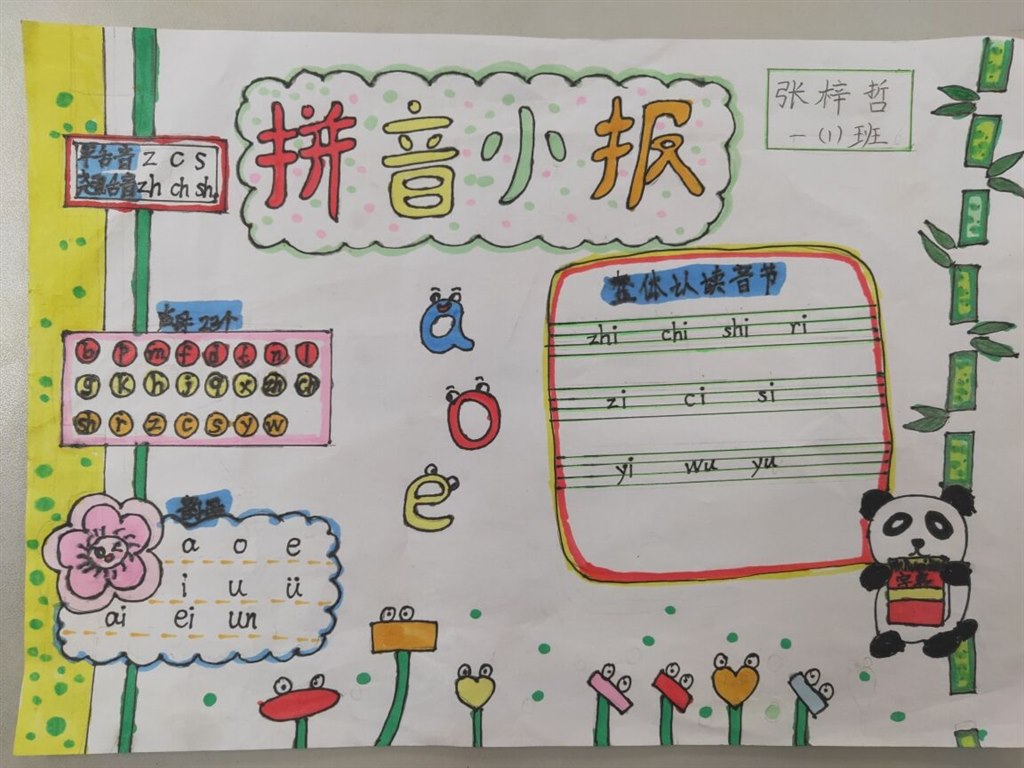 拼音小报
张梓哲
一(1)班
平舌音 z c s
翘舌音 zh ch sh
声母 23个
b p m f d t n l
g k h j q x zh ch
sh r z c s y w
a
o
e
整体认读音节
zhi chi shi ri
zi ci si
yi wu yu
韵母
a o e
i u ü
ai ei un
字典